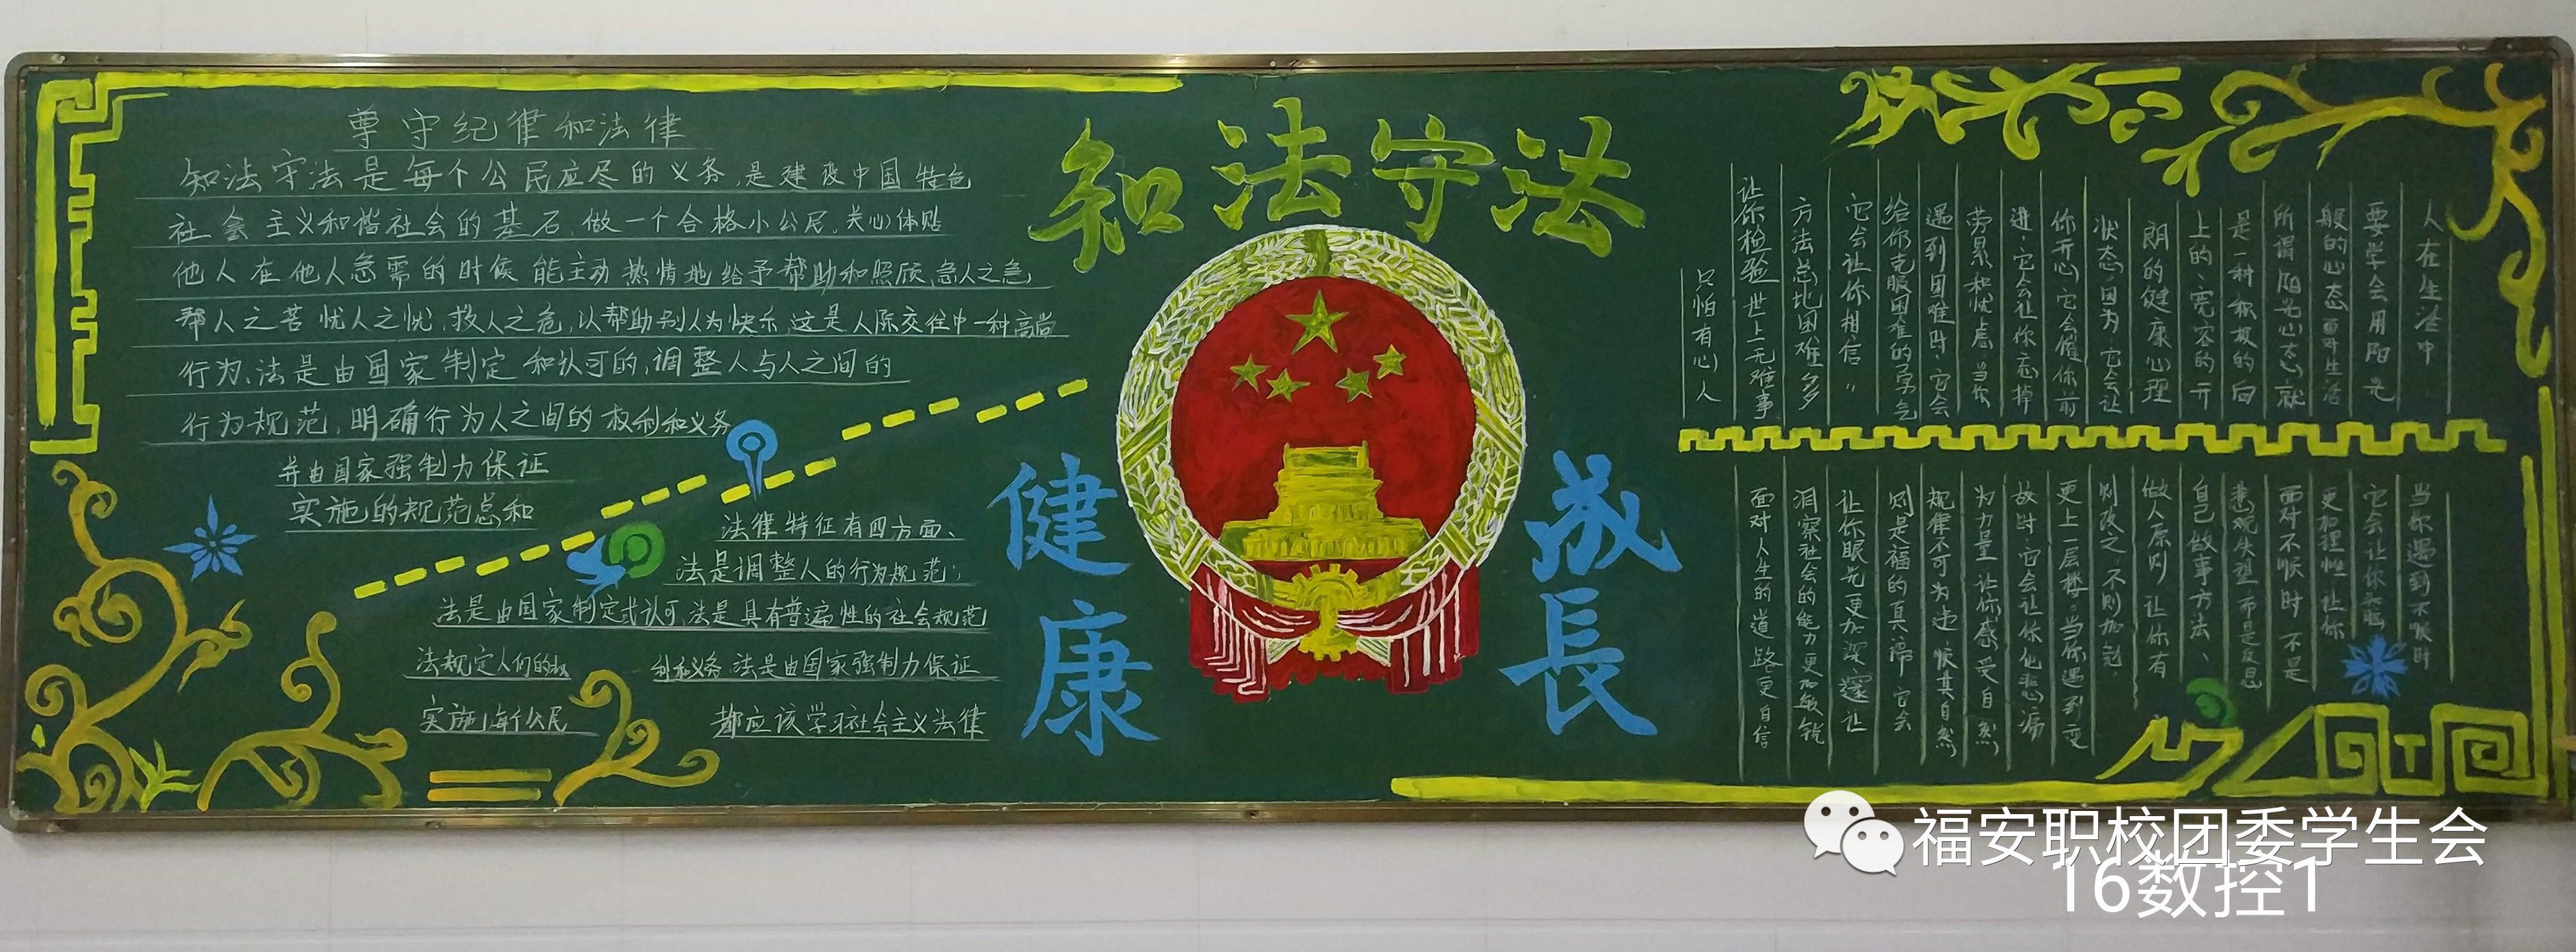 知法守法
健康
成長
尊守纪律和法律
知法守法是每个公民应尽的义务,是建设中国特色
社会主义和谐社会的基石,做一个合格小公民,关心体贴
他人在他人急需的时候能主动热情地给予帮助和照顾,急人之急
帮人之苦忧人之忧,救人之危,以帮助别人为快乐,这是人际交往中一种高尚
行为,法是由国家制定和认可的,调整人与人之间的
行为规范,明确行为人之间的权利和义务
并由国家强制力保证
实施的规范总和
法律特征有四方面、
法是调整人的行为规范;
法是由国家制定或认可,法是具有普遍性的社会规范
法规定人们的权利和义务,法是由国家强制力保证
实施,每个公民都应该学习社会主义法律
人在生活中
要学会用阳光
般的心态面对生活
所谓阳光心态就
是一种积极的向
上的、宽容的开
朗的健康心理
状态因为它会让
你开心,它会催你前
进,它会让你忘掉
劳累和忧虑,当你
遇到困难时,它会
给你克服困难的勇气
它会让你相信“
方法总比困难多
让你检验世上无难事
只怕有心人
当你遇到不顺时
它会让你头脑
更加理性让你
面对不顺时不是
悲观失望而是反思
自己做事方法、
做人原则让你有
则改之,不则加勉,
更上一层楼。当你遇到变
故时,它会让你化悲痛
为力量让你感受自然
规律不可为违顺其自然
则是福的真谛它会
让你眼光更加深邃让
洞察社会的能力更加敏锐
面对人生的道路更自信
福安职校团委学生会
16数控1